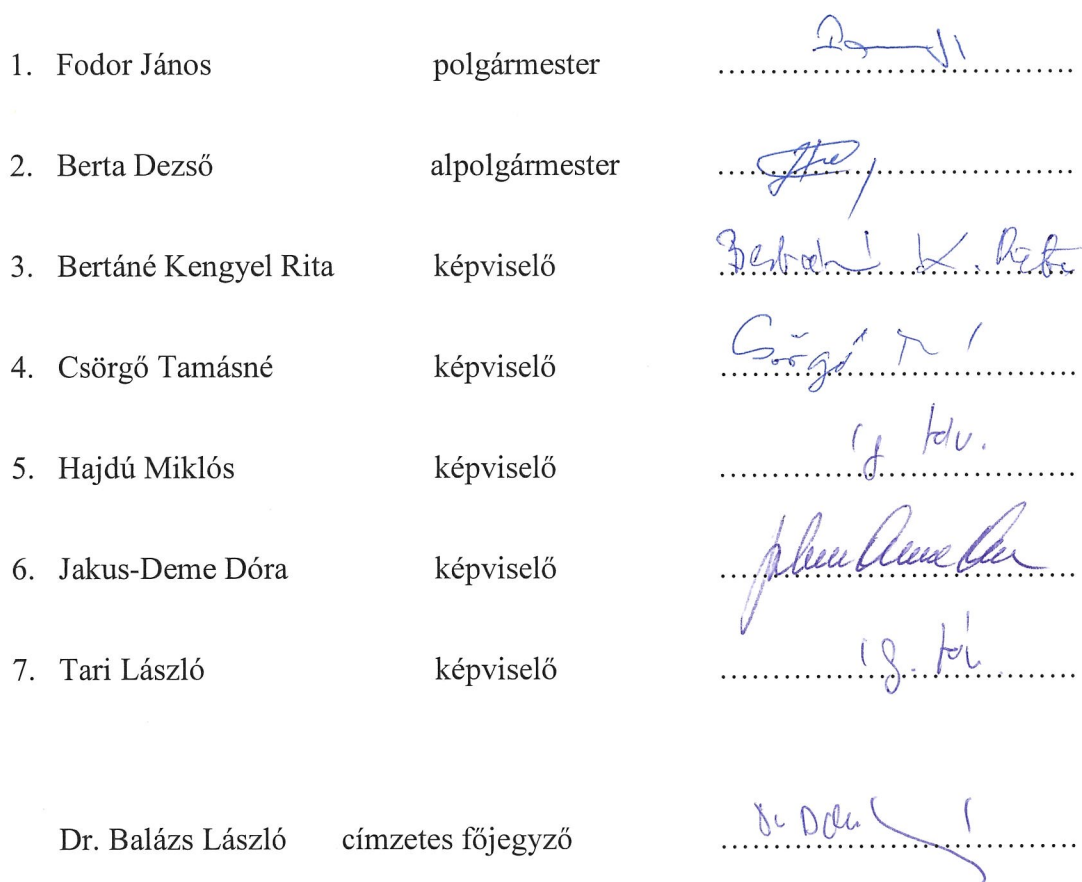 1. Fodor János polgármester ....................................
2. Berta Dezső alpolgármester ....................................
3. Bertáné Kengyel Rita képviselő Bertáné K. Rita
4. Csörgő Tamásné képviselő Csörgő T.né
5. Hajdú Miklós képviselő ig. táv.
6. Jakus-Deme Dóra képviselő ....................................
7. Tari László képviselő ig. táv.
Dr. Balázs László címzetes főjegyző ....................................